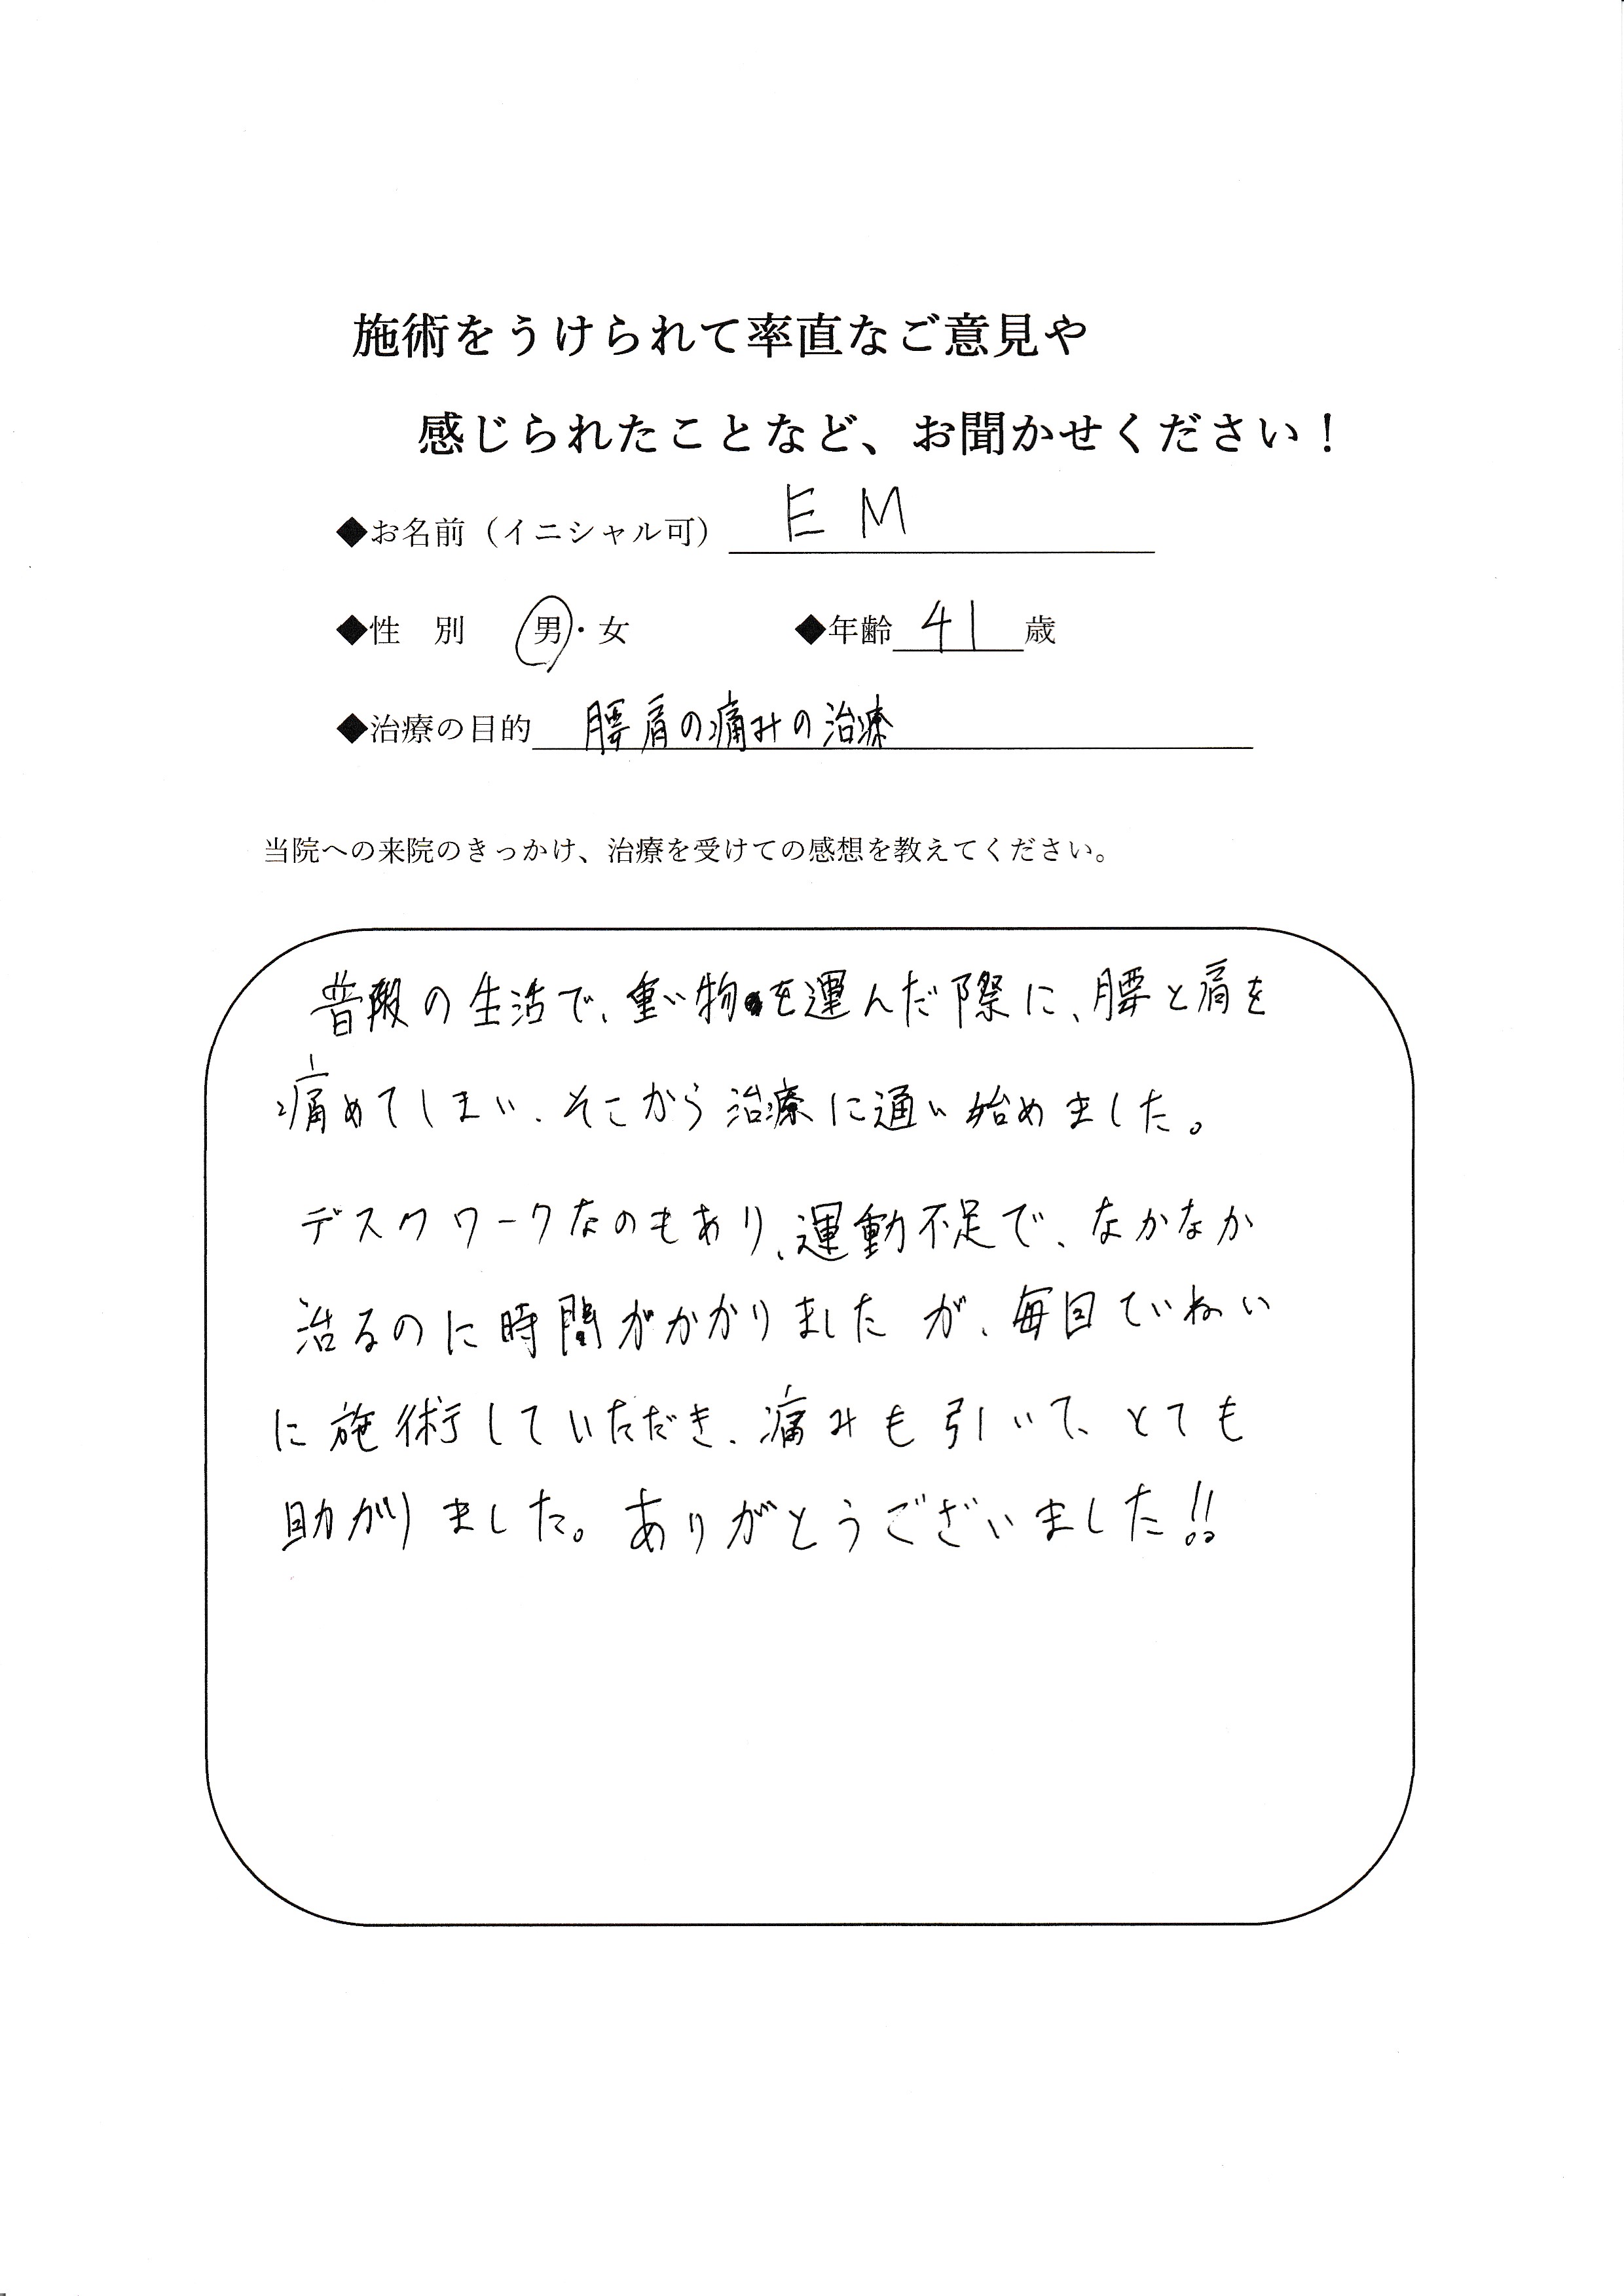 施術をうけられて率直なご意見や
感じられたことなど、お聞かせください！
◆お名前（イニシャル可） E M
◆性　別　男・女　◆年齢 41 歳
◆治療の目的 腰肩の痛みの治療
当院への来院のきっかけ、治療を受けての感想を教えてください。
普段の生活で、重い物を運んだ際に、腰と肩を
痛めてしまい、そこから治療に通い始めました。
デスクワークなのもあり、運動不足で、なかなか
治るのに時間がかかりましたが、毎回ていねい
に施術していただき、痛みも引いて、とても
助かりました。ありがとうございました!!